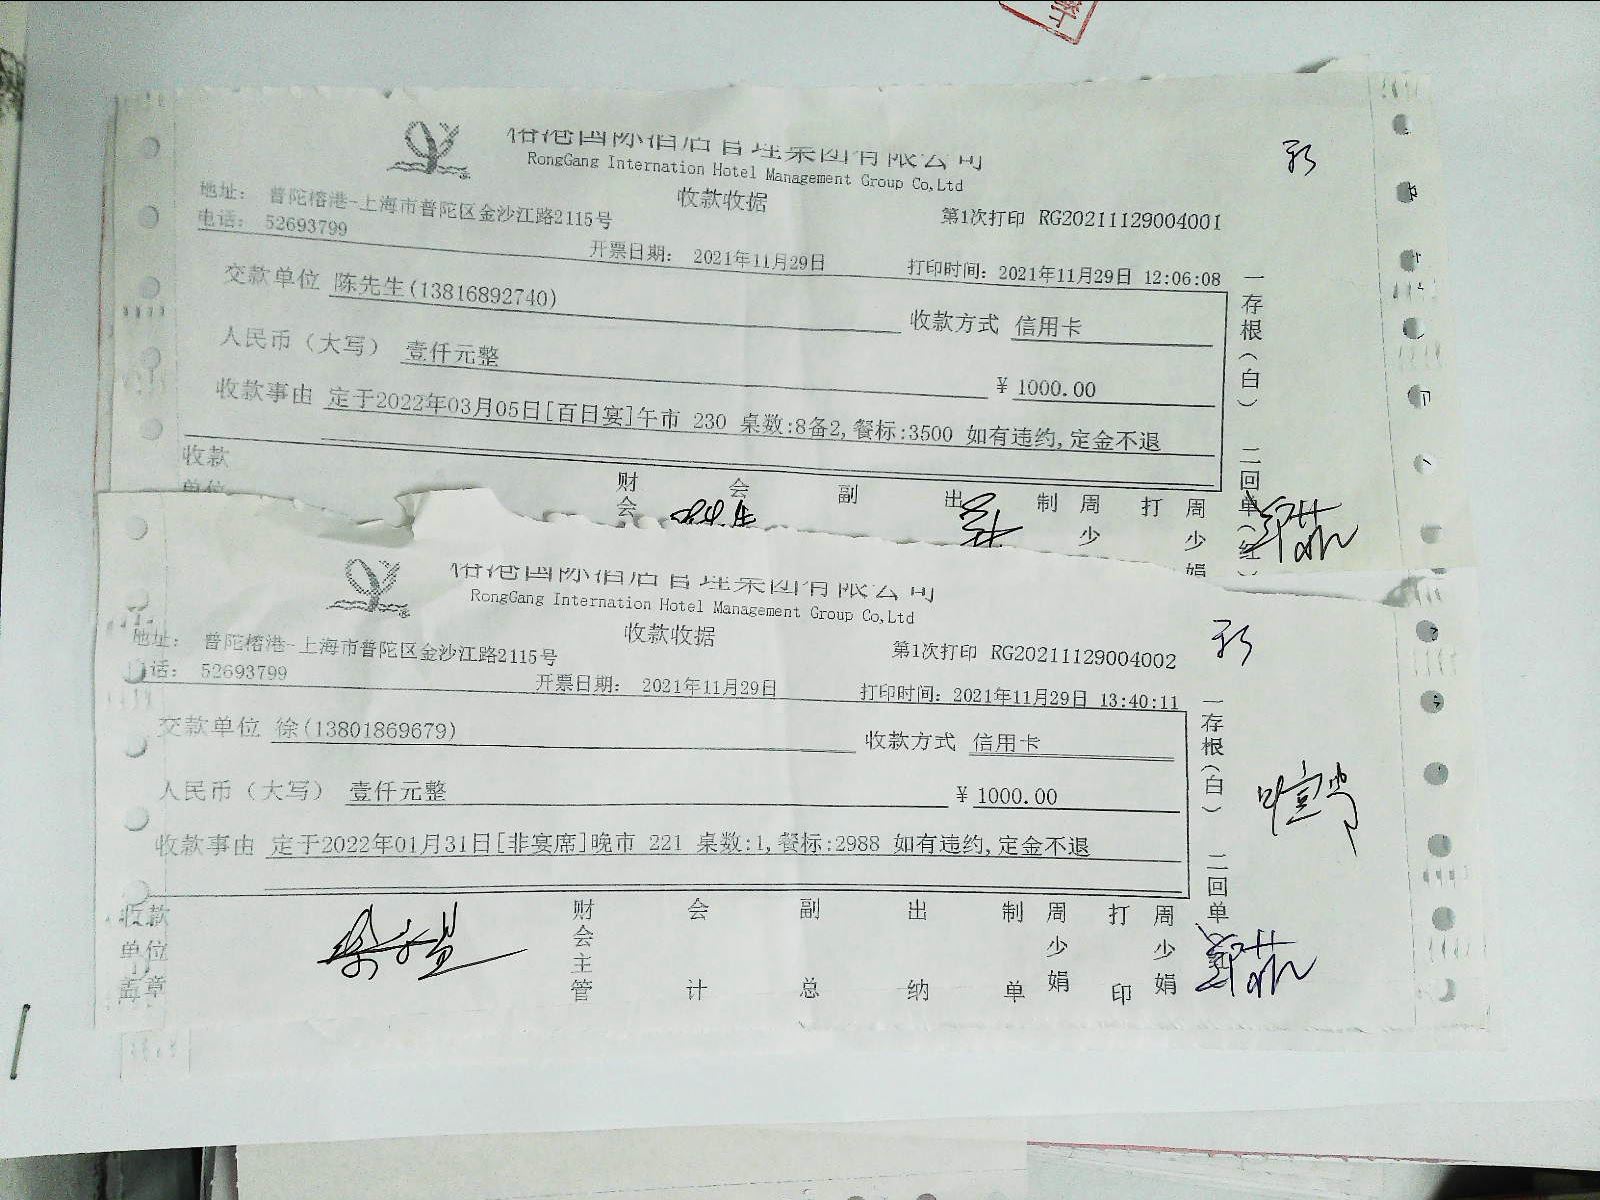 榕港国际酒店管理集团有限公司
RongGang Internation Hotel Management Group Co,Ltd
收款收据
地址： 普陀榕港-上海市普陀区金沙江路2115号
第1次打印 RG20211129004001
电话： 52693799
开票日期： 2021年11月29日
打印时间：2021年11月29日 12:06:08
交款单位 陈先生(13816892740)
收款方式 信用卡
人民币（大写） 壹仟元整
￥ 1000.00
收款事由 定于2022年03月05日[百日宴]午市 230 桌数:8备2,餐标:3500 如有违约,定金不退
一存根(白) 二回单(红)
收款
单位
财会 会 副 出 制 周少 打 周少娟
榕港国际酒店管理集团有限公司
RongGang Internation Hotel Management Group Co,Ltd
收款收据
地址： 普陀榕港-上海市普陀区金沙江路2115号
第1次打印 RG20211129004002
电话： 52693799
开票日期： 2021年11月29日
打印时间：2021年11月29日 13:40:11
交款单位 徐(13801869679)
收款方式 信用卡
人民币（大写） 壹仟元整
￥ 1000.00
收款事由 定于2022年01月31日[非宴席]晚市 221 桌数:1,餐标:2988 如有违约,定金不退
一存根(白) 二回单
收款
单位
盖章
财会主管 会计 副总 出纳 制单 周少娟 打印 周少娟